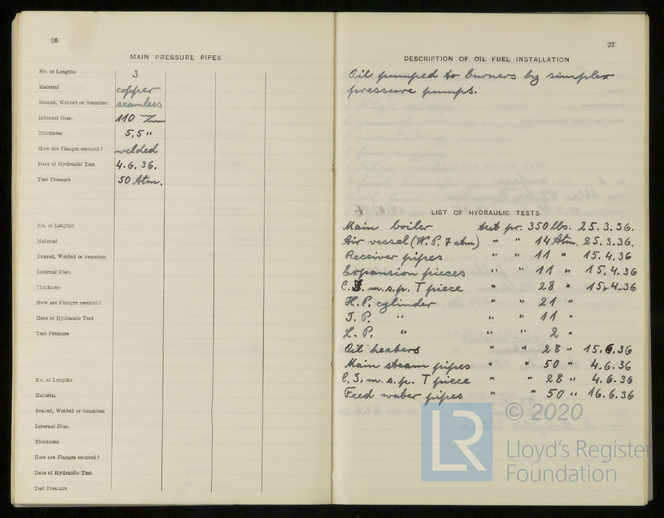 26
MAIN PRESSURE PIPES
No. of Lengths 3
Material copper
Brazed, Welded or Seamless seamless
Internal Diar. 110 m/m
Thickness 5,5 "
How are Flanges secured? welded
Date of Hydraulic Test 4.6.36.
Test Pressure 50 Atm.
No. of Lengths
Material
Brazed, Welded or Seamless
Internal Diar.
Thickness
How are Flanges secured?
Date of Hydraulic Test
Test Pressure
No. of Lengths
Material
Brazed, Welded or Seamless
Internal Diar.
Thickness
How are Flanges secured?
Date of Hydraulic Test
Test Pressure
27
DESCRIPTION OF OIL FUEL INSTALLATION
Oil pumped to burners by simplex
pressure pumps.
LIST OF HYDRAULIC TESTS
Main boiler test pr. 350 lbs. 25.3.36.
Air vessel (W.P. 7 atm) " " 14 Atm. 25.3.36.
Receiver pipes " " 11 " 15.4.36
Expansion pieces " " 11 " 15.4.36
m.s.p. T piece " " 28 " 15.4.36
H.P. cylinder " " 21 "
I.P. " " " 11 "
L.P. " " " 2 "
Oil heaters " " 28 " 15.6.36
Main steam pipes " " 50 " 4.6.36
m.s.p. T piece " " 28 " 4.6.36
Feed water pipes " " 50 " 16.6.36
LR © 2020
Lloyd's Register
Foundation